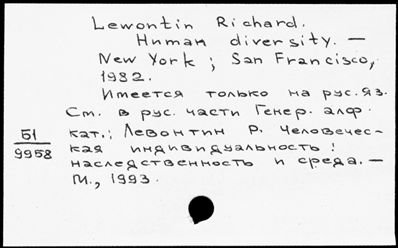 Lewontin Richard.
Human diversity. —
New York ; San Francisco,
1982.
Имеется только на рус. яз.
См. в рус. части Генер. алф.
кат.: Левонтин Р. Человечес-
кая индивидуальность :
наследственность и среда. —
М., 1993.
Б1
9958